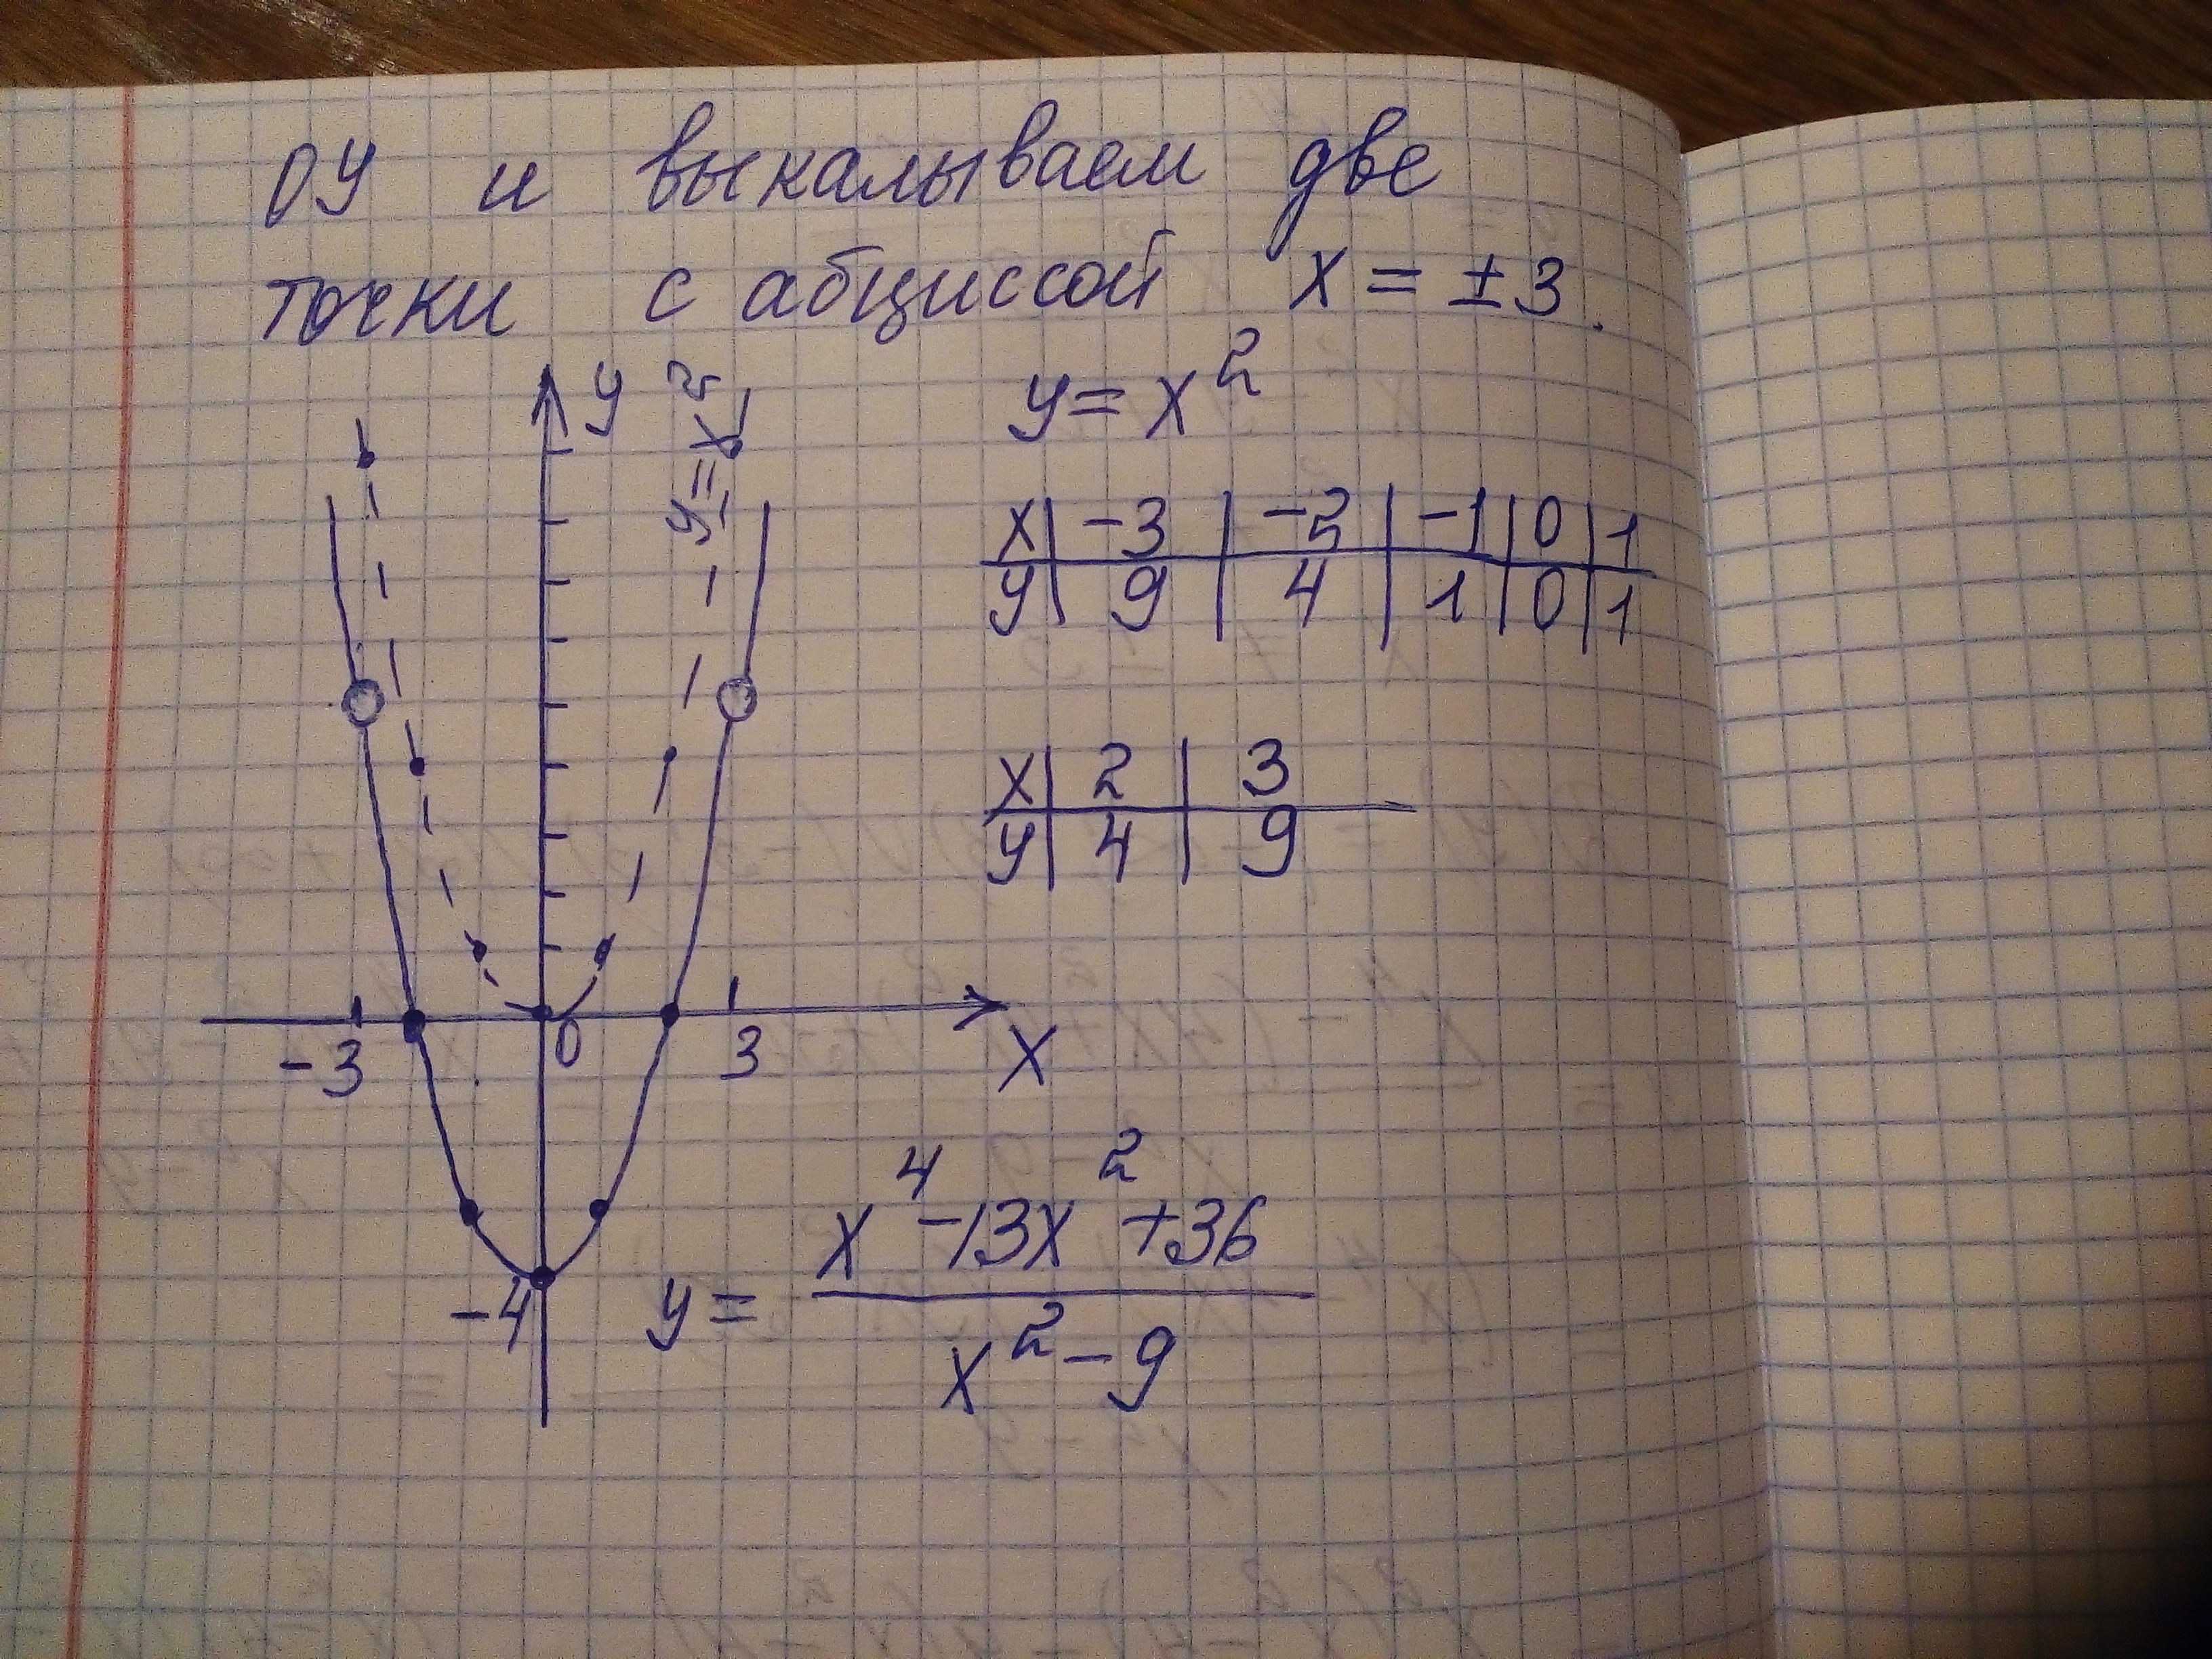 ОУ и выкалываем две
точки с абциссой x = ±3.
y = x²
x | -3 | -2 | -1 | 0 | 1
y | 9 | 4 | 1 | 0 | 1
x | 2 | 3
y | 4 | 9
y
y = x²
-3 0 3
x
-4
y = (x⁴ - 13x² + 36) / (x² - 9)